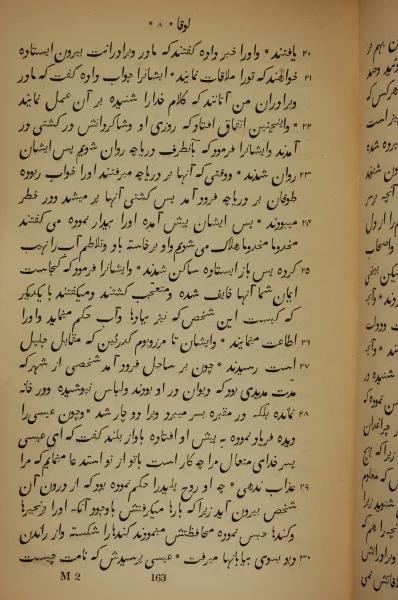 لوقا * ۸ *
۲۰ یافتند * و اورا خبر داده گفتند که مادر و برادرانت بیرون ایستاده
۲۱ خواهند که تورا ملاقات نمایند * ایشانرا جواب داده گفت که مادر
و برادران من آنانند که کلام خدارا شنیده بر آن عمل نمایند
۲۲ * و همچنین اتفاق افتاد که روزی او و شاگردانش در کشتی در
آمدند و ایشانرا فرمود که بآنطرف دریاچه روان شویم پس ایشان
۲۳ روان شدند * و وقتی که آنها بر دریاچه میرفتند اورا خواب ربوده
طوفان بر دریاچه فرود آمد پس کشتی آنها پر میشد و در خطر
۲۴ میبودند * پس ایشان پیش آمده اورا بیدار نموده می گفتند
مخدوما مخدوما هلاک می شویم و او برخاسته باد و تلاطم آب را نهیب
۲۵ کرده پس باز ایستاده ساکن شدند * و ایشانرا فرمود که کجاست
ایمان شما آنها خایف شده و متعجب گشتند و میگفتند با یکدیگر
که کیست این شخص که نیز ببادها و آب حکم مینماید و اورا
۲۶ اطاعت مینمایند * و ایشان تا مرزوبوم گدریین که مقابل جلیل
۲۷ است رسیدند * چون بر ساحل فرود آمد شخصی از شهر که
مدت مدیدی بود که دیوان در او بودند و لباس نپوشیده و در خانه
۲۸ نمانده بلکه در مقبره بسر میبرد ویرا دو چار شد * و چون عیسی را
دیده فریاد نموده به پیش او افتاده باواز بلند گفت که ای عیسی
پسر خدای متعال مرا چه کار است با تو از تو استدعا مینمایم که مرا
۲۹ عذاب ندهی * چه او روح پلید را حکم نموده بود که از درون آن
شخص بیرون آید زیرا که بارها میگرفتش با وجود آنکه اورا بزنجیرها
و کندها حبس نموده محافظتش مینمودند کندهارا شکسته و از راندن
۳۰ دیو بسوی بیابانها میرفت * عیسی پرسیدش که نامت چیست
M 2
163